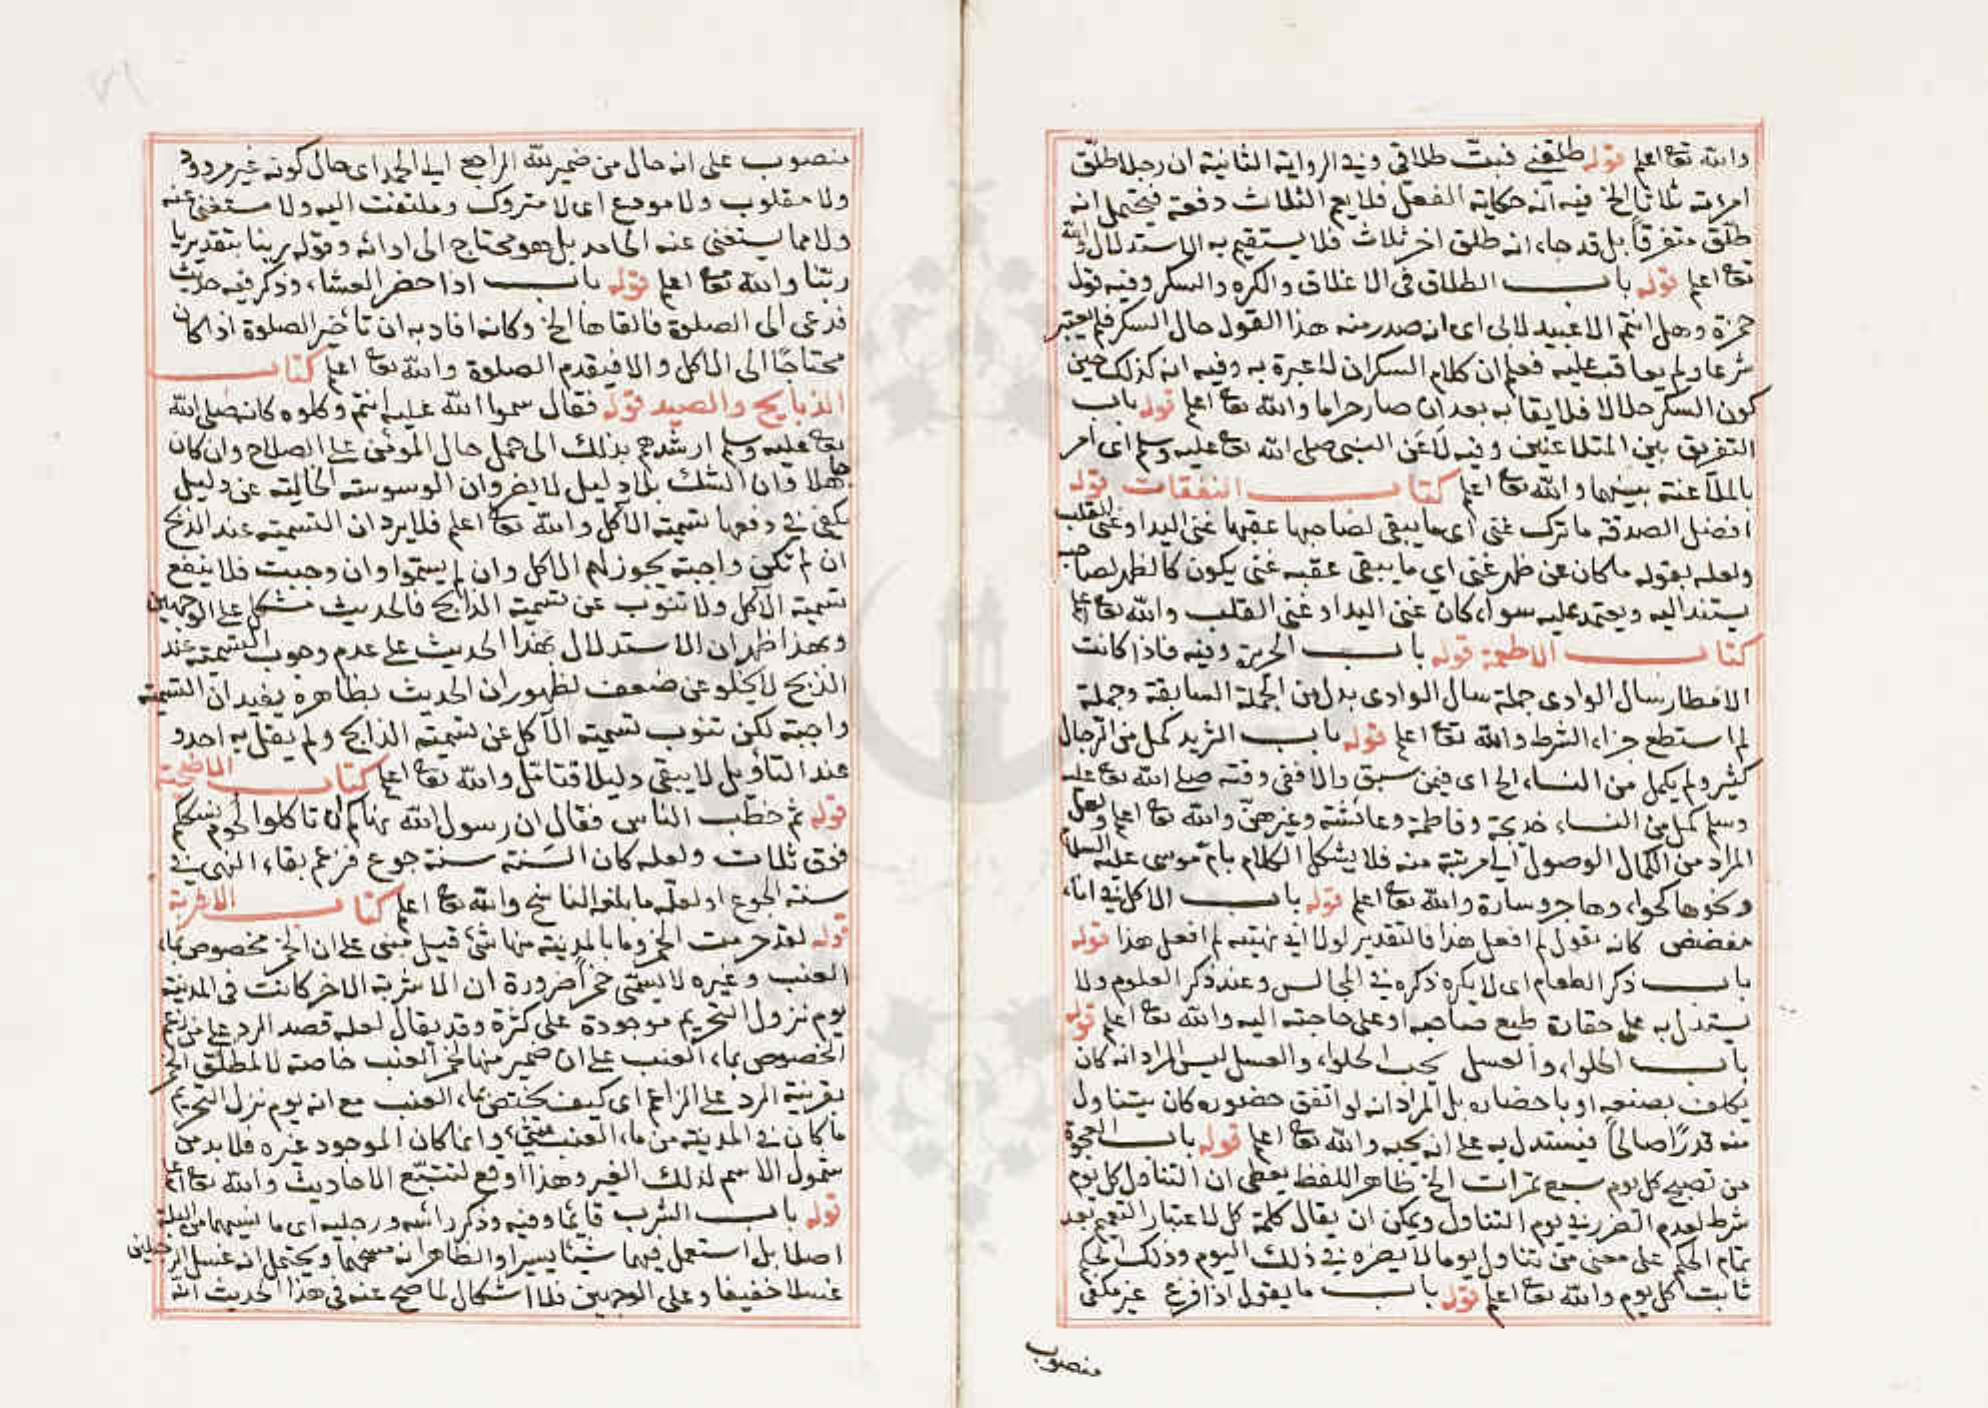 والله تعا اعلم قوله طلقني فبتّ طلاقي وفي الرواية الثانية ان رجلا طلّق
امراته ثلاثا الخ فيه أنه حكاية الفعل فلا يعم الثلاث دفعة فيحتمل انه
طلّق متفرقاً بل قد جاء انه طلق اخر ثلاث فلا يستقيم به الاستدلال والله
تعا اعلم قوله باب الطلاق فى الاغلاق والكره والسكر وفيه قول
حمزة وهل انتم الا عبيد لابى اى انه صدر منه هذا القول حال السكر فلم يعتبر
شرعا ولم يعاقب عليه فعلم ان كلام السكران لا عبرة به وفيه انه كذلك حين
كون السكر حلالا فلا يقاس به بعد ان صار حراما والله تعا اعلم قوله باب
التفريق بين المتلاعنين وفيه لاعَن النبي صلى الله تعا عليه وسلم اى امر
بالملاعنة بينهما والله تعا اعلم كتاب النفقات قوله
افضل الصدقة ما ترك غنى اى ما يبقى لصاحبها عقبها غنى اليد او غنى القلب
ولعله لقوله ما كان عن ظهر غنى اي ما يبقى عقبه غنى يكون كالظهر لصاحبه
يستند اليه ويعتمد عليه سواء كان غنى اليد او غنى القلب والله تعا اعلم
كتاب الاطعمة قوله باب الحريرة وفيه فاذا كانت
الامطار سال الوادى جملة سال الوادى بدل من الجملة السابقة وجملة
لم استطع جزاء الشرط والله تعا اعلم قوله باب الثريد كمل من الرجال
كثير ولم يكمل من النساء الخ اى فيمن سبق والا ففى وقته صلى الله تعا عليه
وسلم كمل من النساء خديجة وفاطمة وعائشة وغيرهنّ والله تعا اعلم ولعل
المراد من الكمال الوصول الى مرتبة منه فلا يشكل الكلام بام موسى عليه السلام
ونحوها كحواء وهاجر وسارة والله تعا اعلم قوله باب الاكل في اناء
مفضض كانه يقول لم افعل هذا فالتقدير لولا انى نهيته لم افعل هذا قوله
باب ذكر الطعام اى لا يكره ذكره في المجالس وعند ذكر العلوم ولا
يستدل به على حقارة طبع صاحبه او على حاجته اليه والله تعا اعلم قوله
باب الحلواء والعسل يحب الحلواء والعسل ليس المراد انه كان
يكلف بصنعه او باحضاره بل المراد انه لو اتفق حضوره كان يتناول
منه قدرًا صالحاً فيستدل به على انه يحبه والله تعا اعلم قوله باب العجوة
من تصبح كل يوم سبع تمرات الخ ظاهر اللفظ يعطى ان التناول كل يوم
شرط لعدم الضرر في يوم التناول ويمكن ان يقال كلمة كل لاعتبار التعميم بعد
تمام الحكم على معنى متى تناول يوما لا يضره في ذلك اليوم وذلك الحكم
ثابت كل يوم والله تعا اعلم قوله باب ما يقول اذا فرغ غير مكفى
منصوب
منصوب على انه حال من ضمير لله الراجع الى الحمد اى حال كونه غير مردود
ولا مقلوب ولا مودع اى لا متروك وملتفت اليه ولا مستغنى عنه
ولا مما يستغنى عنه الحامد بل هو محتاج الى ادائه وقوله ربنا بتقدير يا
ربّنا والله تعا اعلم قوله باب اذا حضر العشاء وذكر فيه حديث
فدعى الى الصلوة فالقاها الخ وكانه افاد به ان تأخير الصلوة اذا كان
محتاجًا الى الاكل والا فيقدم الصلوة والله تعا اعلم كتاب
الذبايح والصيد قوله فقال سموا الله عليه انتم وكلوه كانه صلى الله
تعا عليه وسلم ارشدهم بذلك الى حمل حال المؤمن على الصلاح وان كان
جاهلا وان الشك بلا دليل لا يضر وان الوسوسة الخالية عن دليل
يكفى في دفعها تسمية الآكل والله تعا اعلم فلا يرد ان التسمية عند الذبح
ان لم تكن واجبة يجوز لهم الاكل وان لم يسمّوا وان وجبت فلا ينفع
تسمية الآكل ولا تنوب عن تسمية الذابح فالحديث مشكل على الوجهين
وبهذا ظهر ان الاستدلال بهذا الحديث على عدم وجوب التسمية عند
الذبح لا يخلو عن ضعف لظهور ان الحديث بظاهره يفيد ان التسمية
واجبة لكن تنوب تسمية الآكل عن تسمية الذابح ولم يقل به احد و
عند التأويل لا يبقى دليلا فتأمّل والله تعا اعلم كتاب الاضحية
قوله ثم خطب الناس فقال ان رسول الله نهاكم ان تاكلوا لحوم نسككم
فوق ثلاث ولعله كان السَنة سنة جوع فزعم بقاء النهى في
سنة الجوع او لعلّه ما بلغه الناسخ والله تعا اعلم كتاب الاشربة
قوله لقد حرمت الخمر وما بالمدينة منها شئ قيل مبنى على ان الخمر مخصوص بماء
العنب وغيره لا يسمّى خمراً ضرورة ان الاشربة الاخر كانت فى المدينة
يوم نزول التحريم موجودة على كثرة وقد يقال لعله قصد الرد على من زعم
الخصوص بماء العنب على ان ضمير منها لخمر العنب خاصة لا لمطلق الخمر
بقرينة الرد على الزاعم اى كيف يختص بماء العنب مع انه يوم نزل التحريم
ما كان في المدينة من ماء العنب شيء وانما كان الموجود غيره فلا بد من
شمول الاسم لذلك الغير وهذا اوقع لتتبّع الاحاديث والله تعا اعلم
قوله باب الشرب قائما وفيه وذكر رأسه ورجليه اى ما نسيهما من البلة
اصلا بل استعمل فيهما شيئا يسيرا والظاهر انه مسحهما ويحتمل انه غسل الرجلين
غسلا خفيفا وعلى الوجهين فلا اشكال لما صح عنه فى هذا الحديث انه